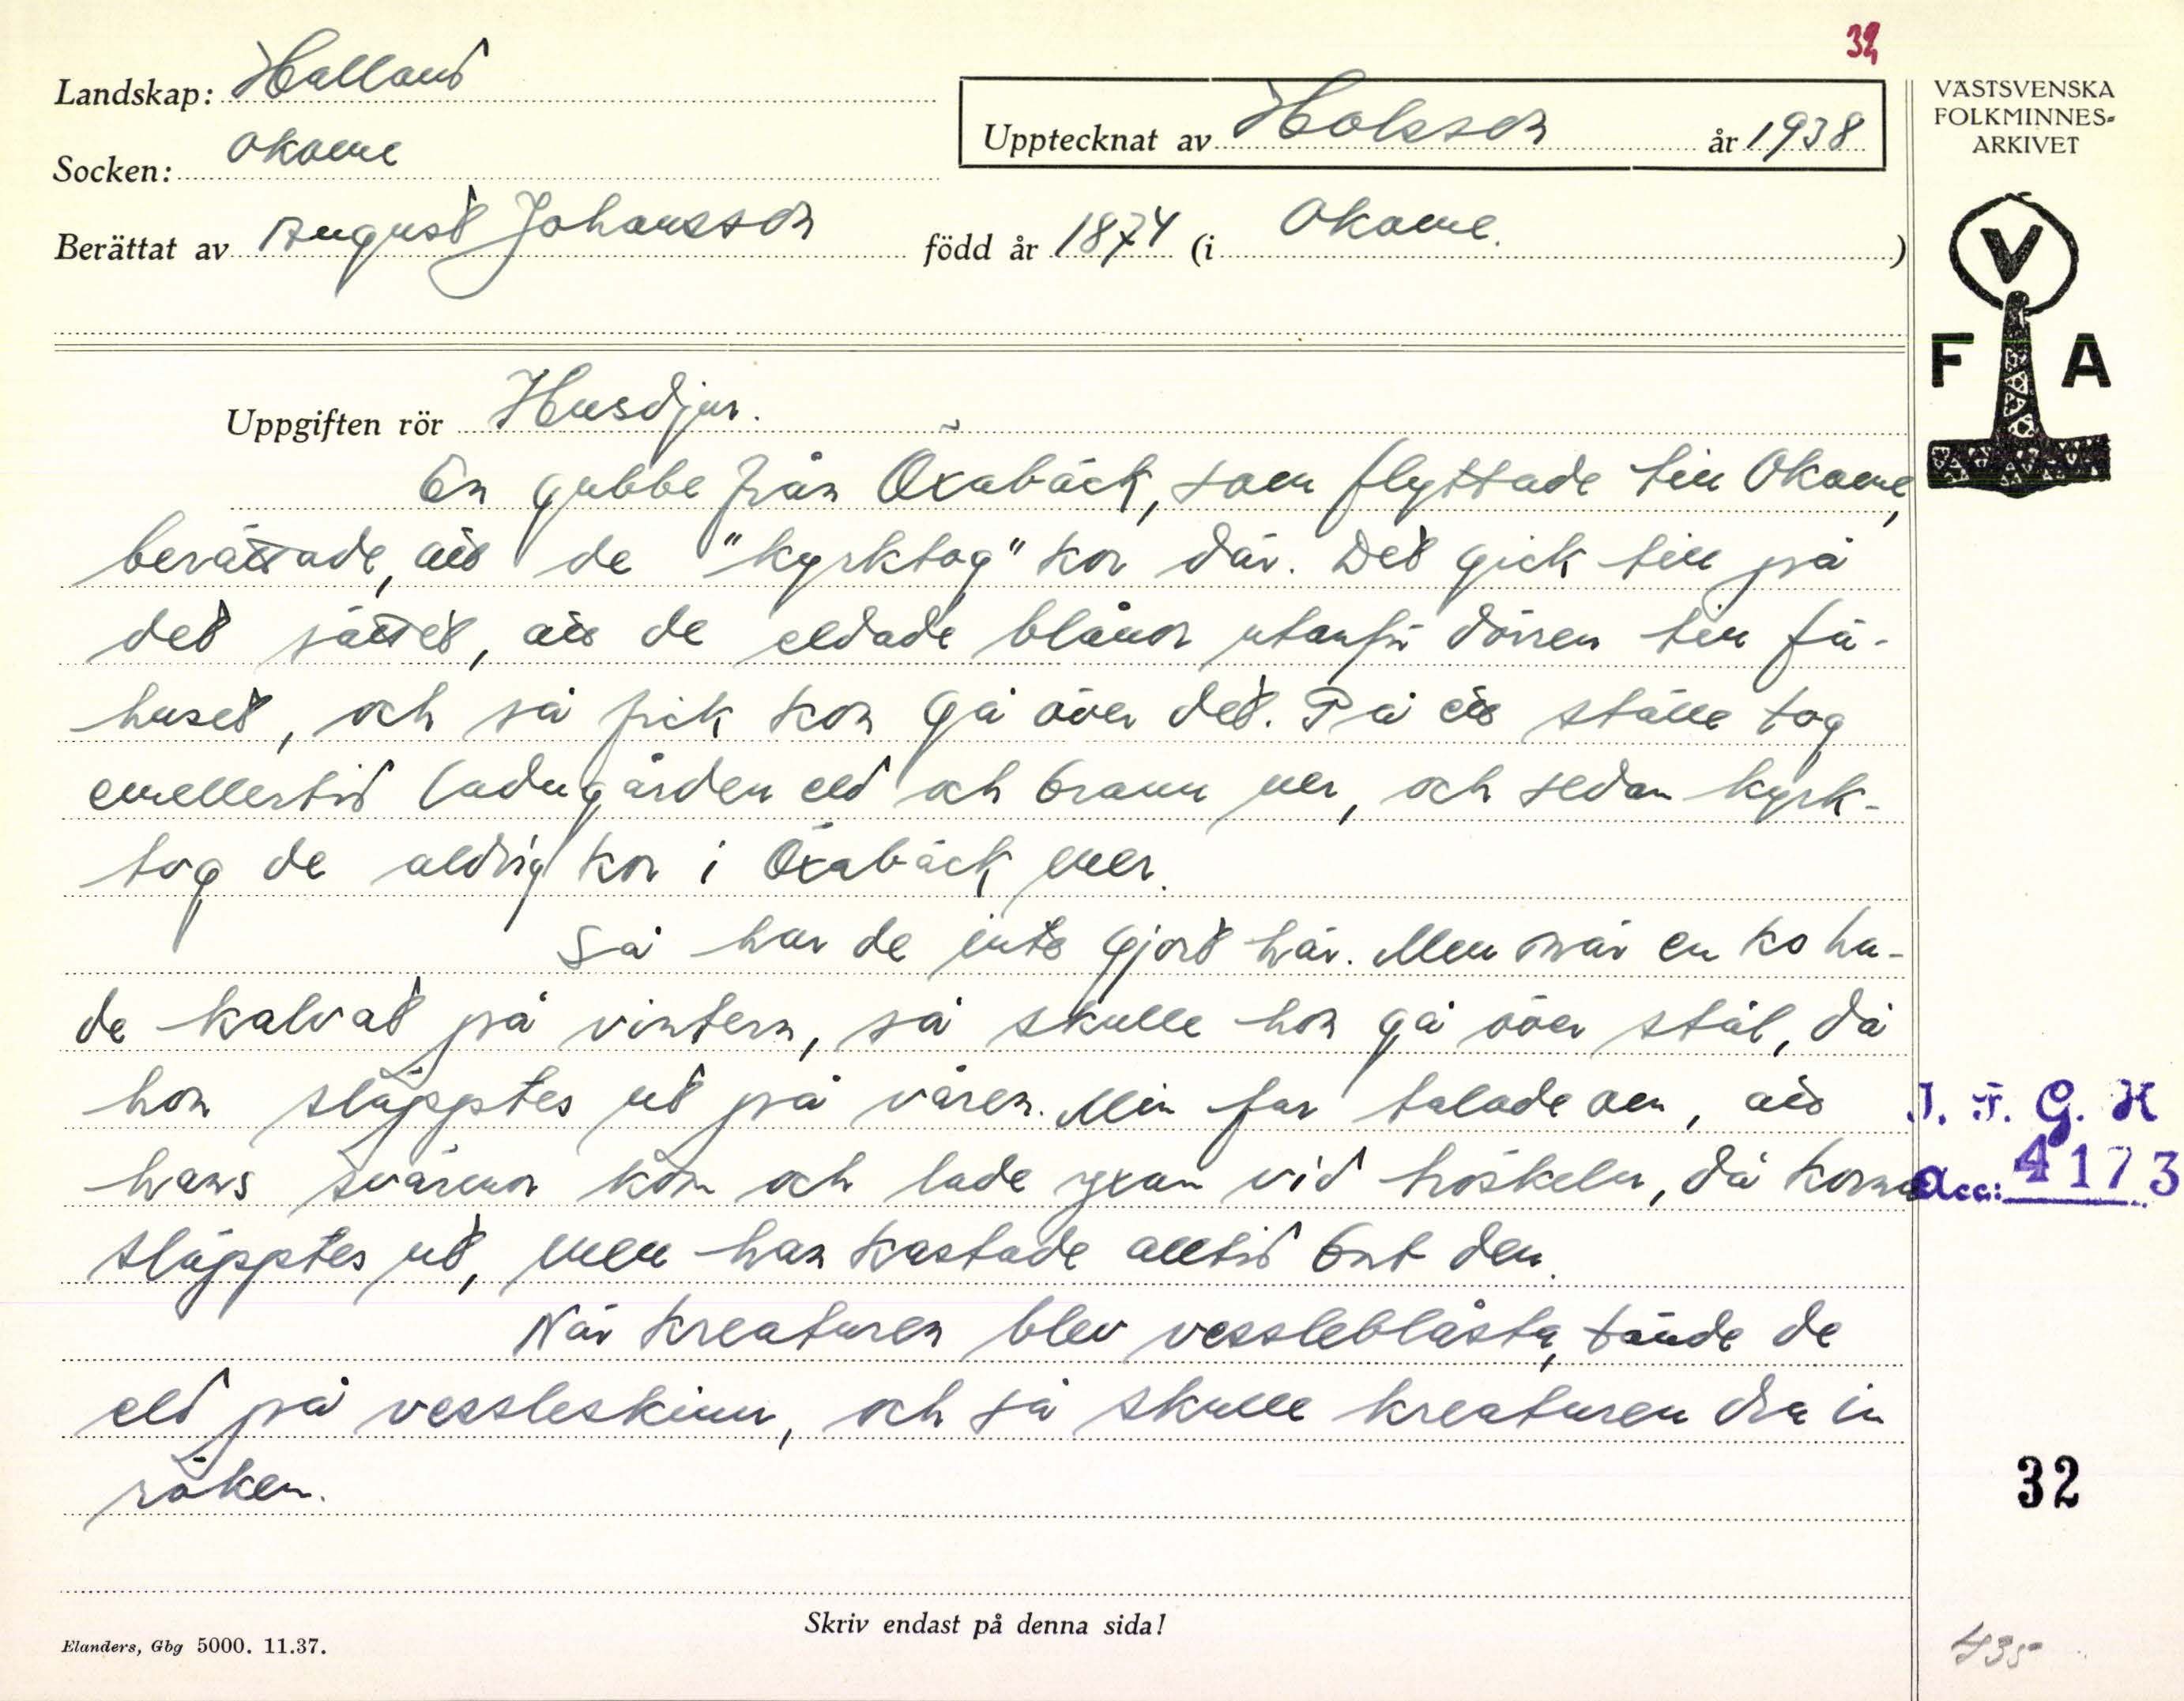 32
Landskap: Halland
Socken: Okome
Upptecknat av Holsson år 1938
Berättat av August Johansson född år 1874 (i Okome.)
VÄSTSVENSKA
FOLKMINNES-
ARKIVET
V
F A
Uppgiften rör Husdjur.
En gubbe från Öxabäck, som flyttade till Okome,
berättade, att de "kyrktog" kor där. Det gick till på
det sättet, att de eldade blånor utanför dörren till fä-
huset, och så fick kon gå över det. På ett ställe tog
emellertid ladugården eld och brann ner, och sedan kyrk-
tog de aldrig kor i Öxabäck mer.
Så har de inte gjort här. Men när en ko ha-
de kalvat på vintern, så skulle hon gå över stål, då
hon släpptes ut på våren. Min far talade om, att
hans svärmor kom och lade yxan vid tröskeln, då korna
släpptes ut, men han kastade alltid bort den.
När kreaturen blev vessleblåsta, tände de
eld på vessleskinn, och så skulle kreaturen dra in
röken.
I. F. G. H
Acc: 4173
32
Skriv endast på denna sida!
Elanders, Gbg 5000. 11.37.
435